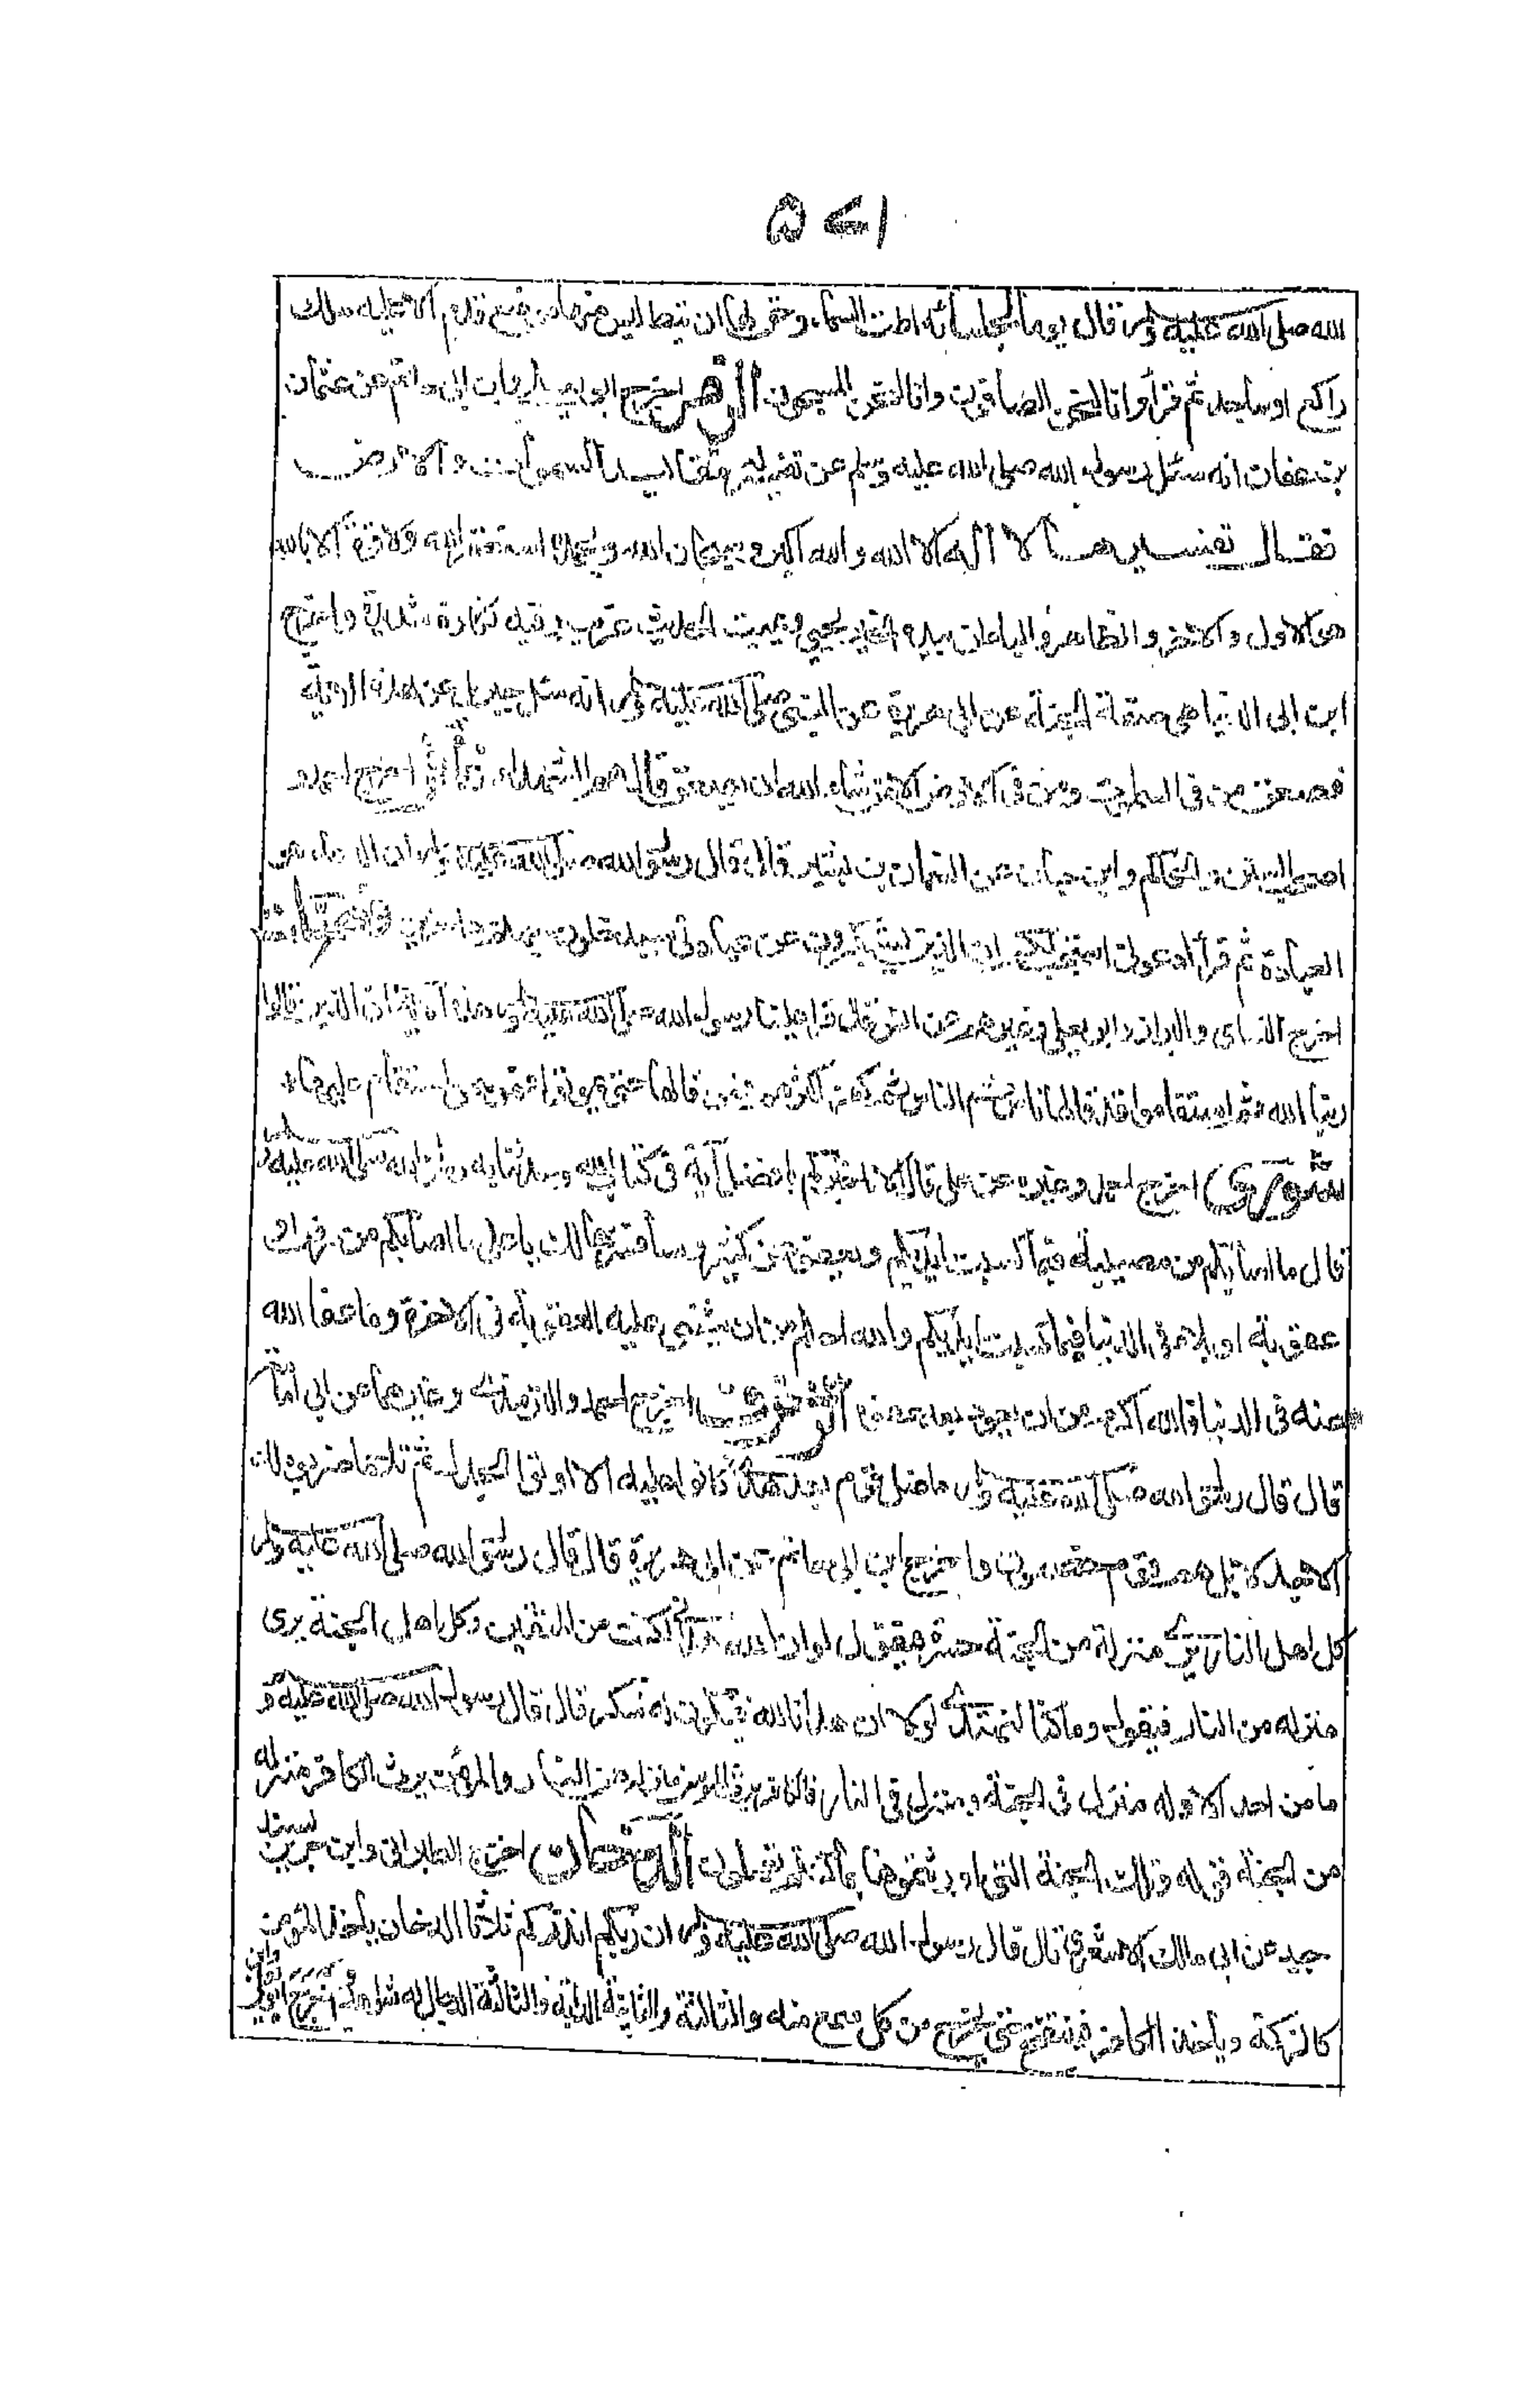 ۵۷۱
لله صلى الله عليه وسلم قال يوما لجلسائه اطت السماء وحق لها ان تئط ليس منها موضع قدم الا عليه ملك
راكع او ساجد ثم قرأ وانا لنحن الصافون وانا لنحن المسبحون الزمر اخرج ابو يعلى وابن ابى حاتم عن عثمان
بن عفان انه سئل رسول الله صلى الله عليه وسلم عن تفسير مقاليد السموات والارض
فقال تفسيرها لا اله الا الله والله اكبر وسبحان الله وبحمده استغفر الله ولا قوة الا بالله
هو الاول والاخر والظاهر والباطن بيده الخير يحيي ويميت الحديث غريب وفيه نكارة شديدة واخرج
ابن ابى الدنيا فى صفة الجنة عن ابى هريرة عن النبى صلى الله عليه وسلم انه سئل جبريل عن هذه الاية
فصعق من فى السموات ومن فى الارض الا من شاء الله من لم يصعق قال هم الشهداء غافر اخرج احمد و
اصحاب السنن والحاكم وابن حبان عن النعمان بن بشير قال قال رسول الله صلى الله عليه وسلم ان الدعاء هى
العبادة ثم قرأ ادعونى استجب لكم ان الذين يستكبرون عن عبادتى سيدخلون جهنم داخرين فصلت
اخرج النسائى والبزار وابو يعلى وغيرهم عن انس قال قرأ علينا رسول الله صلى الله عليه وسلم هذه الآية ان الذين قالوا
ربنا الله ثم استقاموا قد قالها ناس من الناس ثم كفر اكثرهم فمن قالها حتى يموت فهو ممن استقام عليها
شورى اخرج احمد وغيره عن على قال الا اخبركم بافضل آية فى كتاب الله وحدثنا به رسول الله صلى الله عليه وسلم
قال ما اصابكم من مصيبة فبما كسبت ايديكم ويعفو عن كثير وسأفسرها لك يا على ما اصابكم من مرض او
عقوبة او بلاء فى الدنيا فبما كسبت ايديكم والله احلم من ان يثنى عليه العقوبة فى الاخرة وما عفا الله
عنه فى الدنيا فالله اكرم من ان يعود بعد عفوه الزخرف اخرج احمد والترمذى وغيرهما عن ابى امامة
قال قال رسول الله صلى الله عليه وسلم ما ضل قوم بعد هدى كانوا عليه الا اوتوا الجدل ثم تلا ما ضربوه لك
الا جدلا بل هم قوم خصمون واخرج ابن ابى حاتم عن ابى هريرة قال قال رسول الله صلى الله عليه وسلم
كل اهل النار يرى منزله من الجنة حسرة فيقول لو ان الله هدانى لكنت من المتقين وكل اهل الجنة يرى
منزله من النار فيقول وما كنا لنهتدى لولا ان هدانا الله فيكون له شكر قال قال رسول الله صلى الله عليه وسلم
ما من احد الا وله منزل فى الجنة ومنزل فى النار فالكافر يرث المؤمن منزله من النار والمؤمن يرث الكافر منزله
من الجنة قوله وتلك الجنة التى اورثتموها بما كنتم تعملون الدخان اخرج الطبرانى وابن جرير بسند
جيد عن ابى مالك الاشعرى قال قال رسول الله صلى الله عليه وسلم ان ربكم انذركم ثلاثا الدخان يأخذ المؤمن
كالزكمة ويأخذ الكافر فينتفخ حتى يخرج من كل مسمع منه والثانية الدابة والثالثة الدجال له شواهد اخرج ابو يعلى وابن